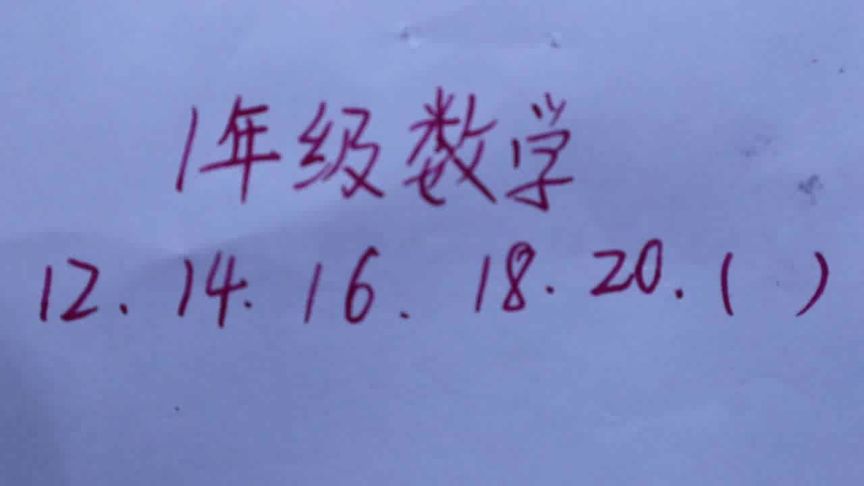 1年级数学
12. 14. 16. 18. 20. ( )